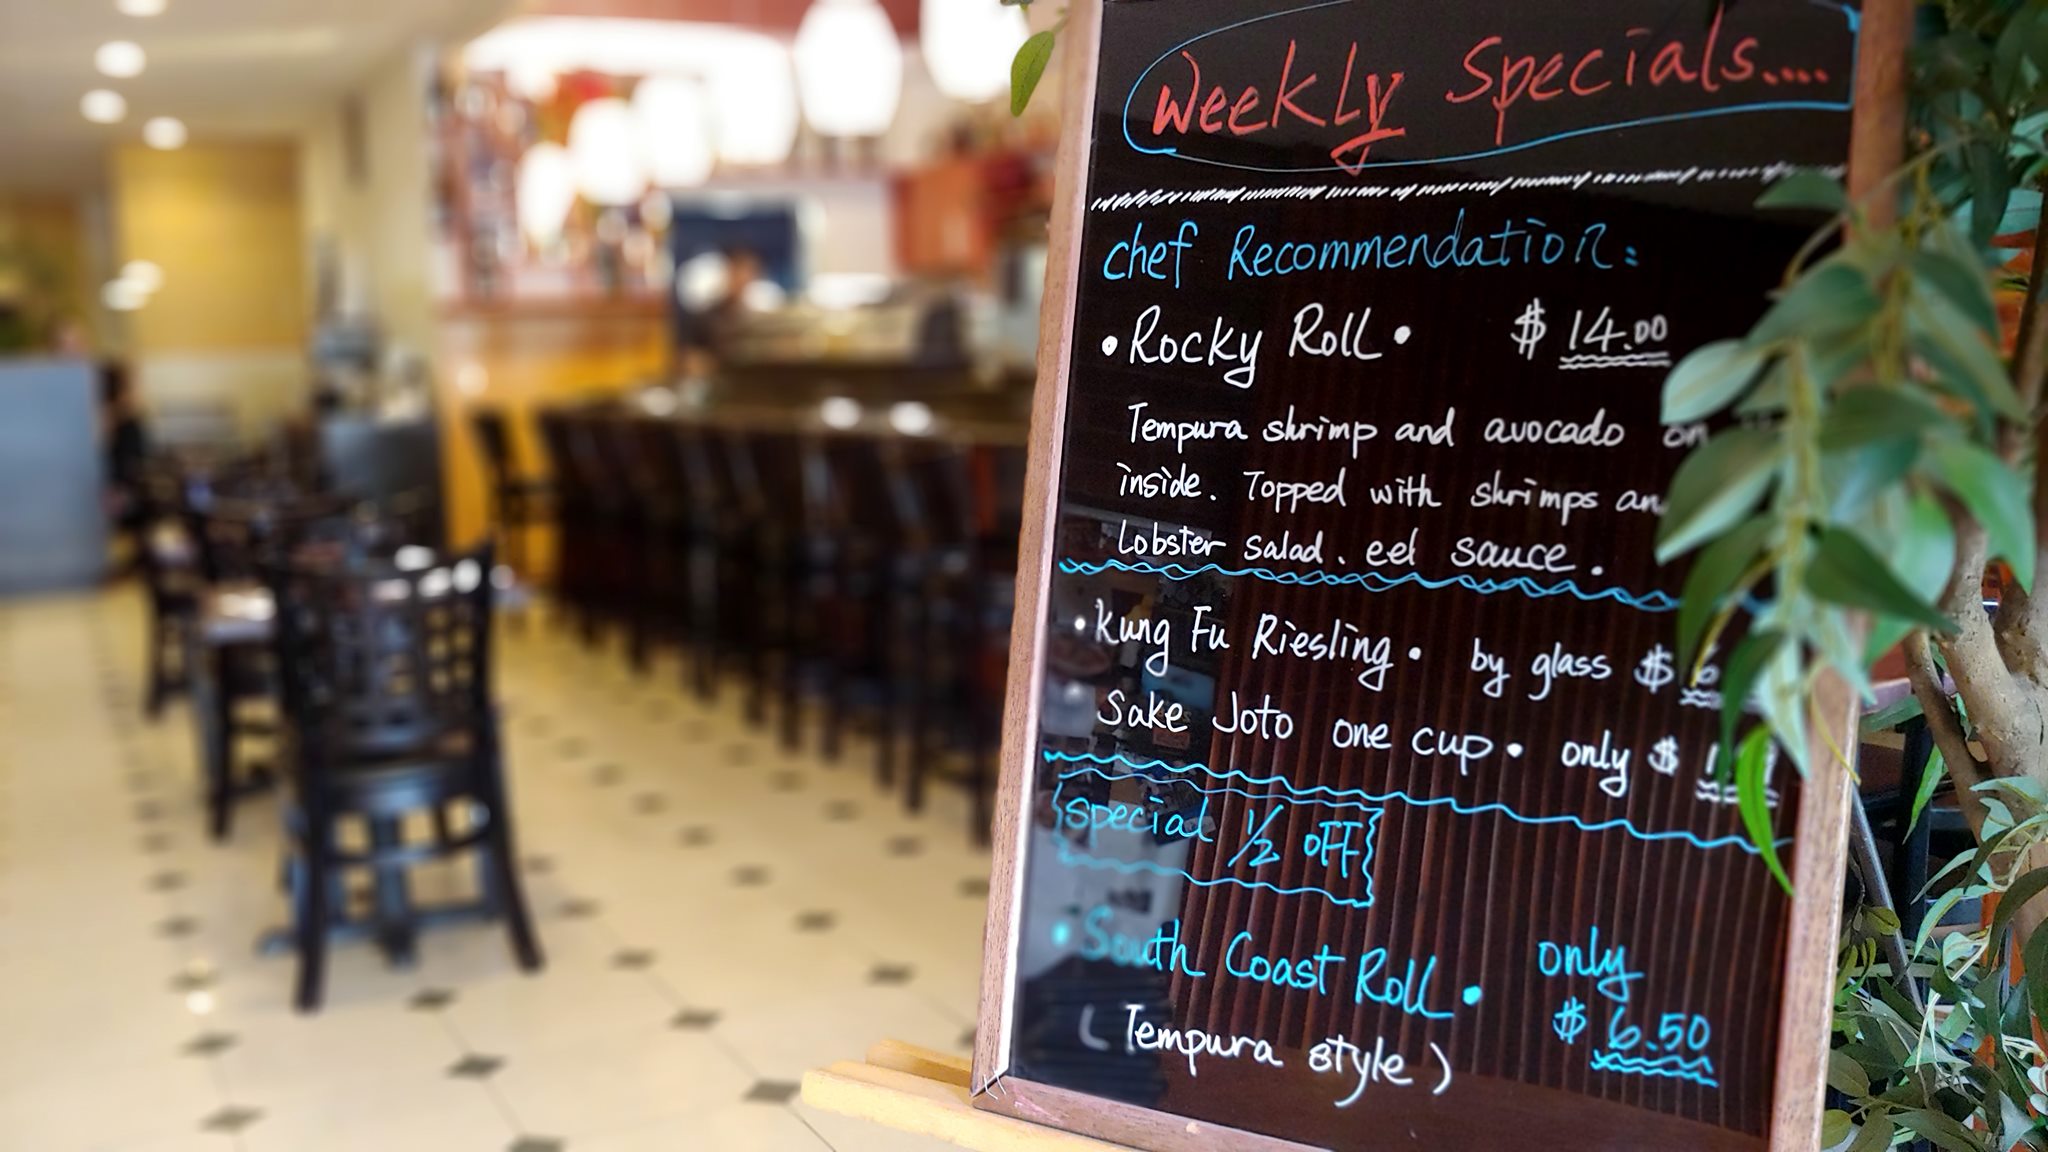 Weekly Specials....
chef Recommendation:
• Rocky Roll • $ 14.00
Tempura shrimp and avocado on
inside. Topped with shrimps
Lobster salad. eel sauce.
• Kung Fu Riesling • by glass $
Sake Joto one cup • only $
special 1/2 OFF
• South Coast Roll • only
$ 6.50
(Tempura style)